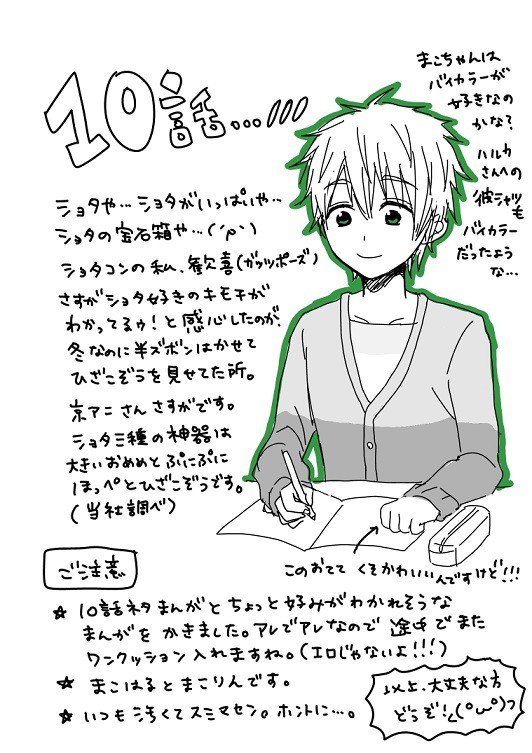 10話…!!!
まこちゃんは
バイカラーが
好きなの
かな?
ハルカ
さんへの
彼シャツ
も
バイカラー
だったよう
な…
ショタや…ショタがいっぱいや…
ショタの宝石箱や…('ρ`)
ショタコンの私、歓喜(ガッツポーズ)
さすがショタ好きのキモチが
わかってるゥ!と感心したのが、
冬なのに半ズボンはかせて
ひざこぞうを見せてた所。
京アニさんさすがです。
ショタ三種の神器は
大きいおめめとぷにぷに
ほっぺとひざこぞうです。
(当社調べ)
このおてて くそかわいいんですけど!!!
ご注意
☆ 10話ネタまんがとちょっと好みがわかれそうな
まんがをかきました。アレでアレなので途中でまた
ワンクッション入れますね。(エロじゃないよ!!!)
☆ まこはるとまこりんです。
☆ いつも汚くてスミマセン。ホントに…。
以上、大丈夫な方
どうぞ!く(°ω°)っ